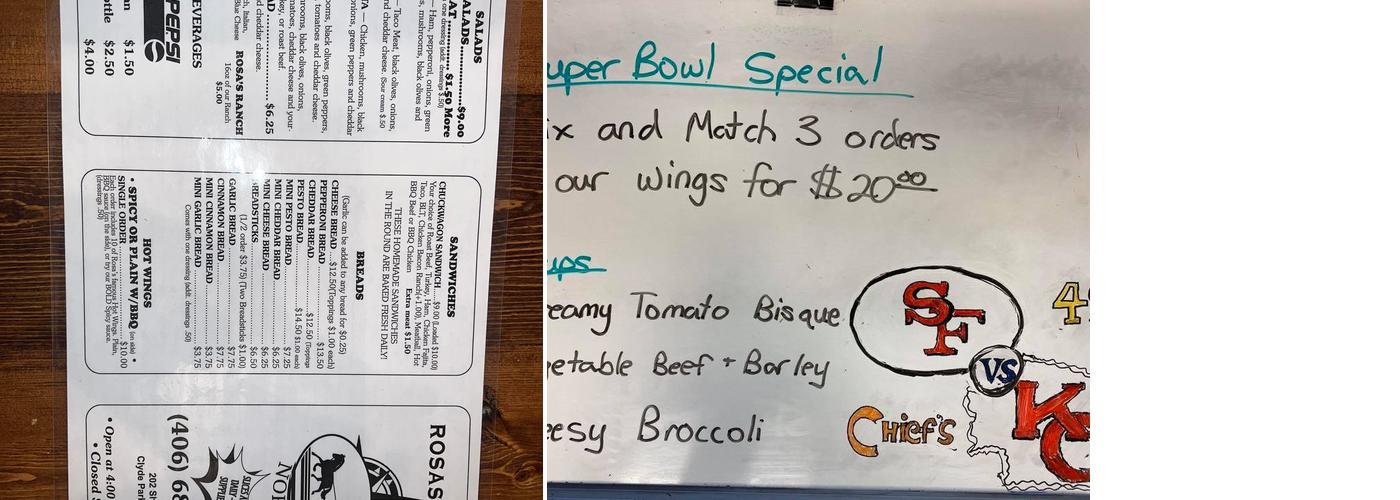 SALADS
ALADS..............$9.00
AT.............. $1.50 More
one dressing (addt. dressings $.50)
— Ham, pepperoni, onions, green
s, mushrooms, black olives and
— Taco Meat, black olives, onions,
nd cheddar cheese. (Sour cream $.50
TA — Chicken, mushrooms, black
onions, green peppers and cheddar
ooms, black olives, green peppers,
tomatoes and cheddar cheese.
hrooms, black olives, onions,
matoes, cheddar cheese and your
key, or roast beef.
AD.................. $6.25
nd cheddar cheese.
ch, Italian,
Blue Cheese
ROSA'S RANCH
16oz of our Ranch
$5.00
EVERAGES
PEPSI
an $1.50
$2.50
ottle $4.00
SANDWICHES
CHUCKWAGON SANDWICH......$9.00 (Loaded $10.00)
Your choice of Roast Beef, Turkey, Ham, Chicken Fajita,
Taco, BLT, Chicken Bacon Ranch(+1.00), Meatball, Hot
BBQ Beef or BBQ Chicken Extra meat $1.50
THESE HOMEMADE SANDWICHES
IN THE ROUND ARE BAKED FRESH DAILY!
BREADS
(Garlic can be added to any bread for $0.25)
CHEESE BREAD....$12.50(Toppings $1.00 each)
PEPPERONI BREAD..............$13.50
CHEDDAR BREAD..............$12.50 (Toppings
PESTO BREAD..............$14.50 $1.00 each)
MINI PESTO BREAD..............$7.25
MINI CHEDDAR BREAD..............$6.25
MINI CHEESE BREAD..............$6.25
READSTICKS..............$6.50
(1/2 order $3.75) (Two Breadsticks $1.00)
GARLIC BREAD..............$7.75
CINNAMON BREAD..............$7.75
MINI CINNAMON BREAD..............$3.75
MINI GARLIC BREAD..............$3.75
Comes with one dressing (addt. dressings .50)
HOT WINGS
• SPICY OR PLAIN W/BBQ (on side) •
SINGLE ORDER..............$10.00
Each order includes 10 of Rosa's famous Hot Wings. Plain,
BBQ sauce (on the side), or try our BOLD Spicy sauce.
(dressings .50)
ROSAS
(406) 68
202 Sh
Clyde Par
• Open at 4:00
• Closed S
uper Bowl Special
ix and Match 3 orders
our wings for $20.00
ups
eamy Tomato Bisque
getable Beef + Barley
eesy Broccoli
SF
49
VS
KC
Chief's